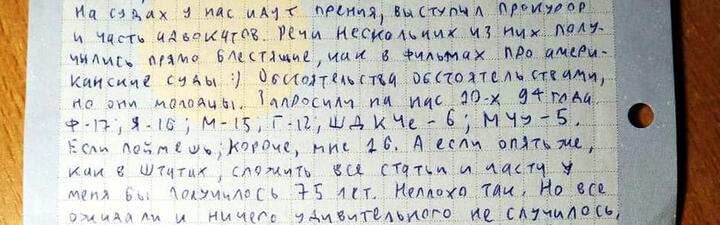 На судах у нас идут прения, выступил прокурор
и часть адвокатов. Речи нескольких из них полу-
чились прямо блестящие, как в фильмах про амери-
канские суды :) Обстоятельства обстоятельствами,
но они молодцы. Запросили на нас 10-х 94 года
Ф-17; Я-16; М-15, Г-12; ШДКЧе-6; МЧУ-5.
Если поймёшь; короче, мне 16. А если опять же,
как в Штатах, сложить все статьи и части у
меня бы получилось 75 лет. Неплохо так. Но все
ожидали и ничего удивительного не случилось,